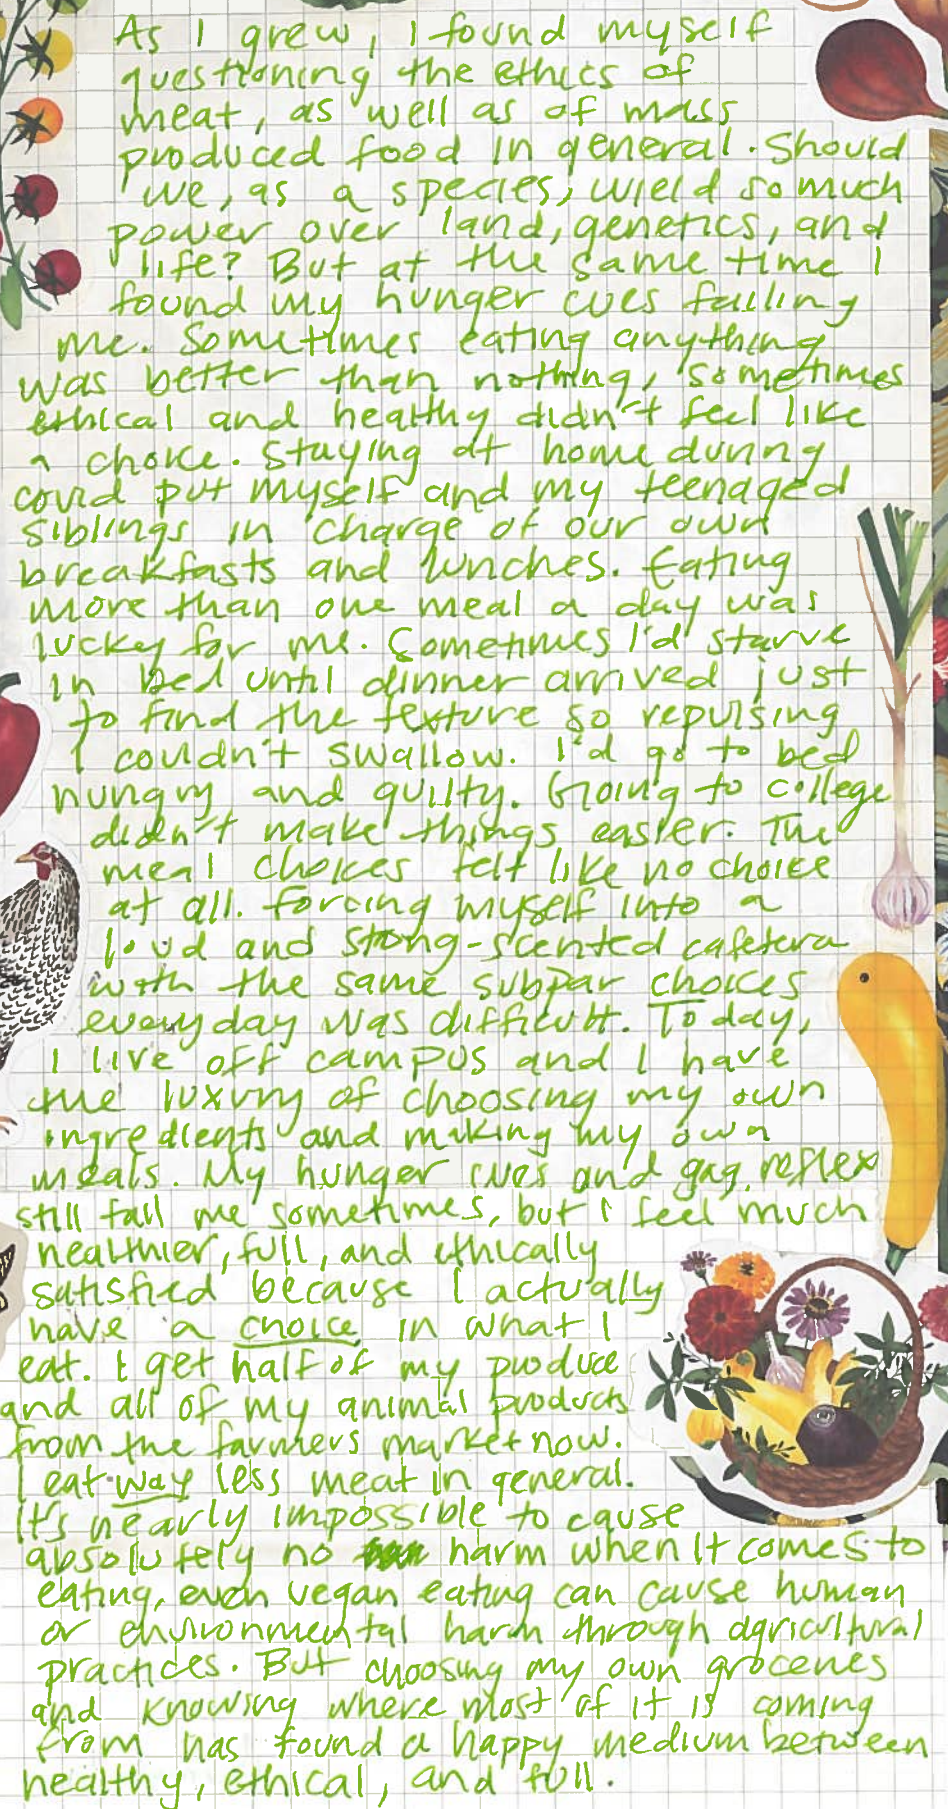 As I grew, I found myself
questioning the ethics of
meat, as well as of mass
produced food in general. Should
we, as a species, wield so much
power over land, genetics, and
life? But at the same time I
found my hunger cues failing
me. Sometimes eating anything
was better than nothing, sometimes
ethical and healthy didn't feel like
a choice. Staying at home during
covid put myself and my teenaged
siblings in charge of our own
breakfasts and lunches. Eating
more than one meal a day was
lucky for me. Sometimes I'd starve
in bed until dinner arrived just
to find the texture so repulsing
I couldn't swallow. I'd go to bed
hungry and guilty. Going to college
didn't make things easier. The
meal choices felt like no choice
at all. Forcing myself into a
loud and stong-scented cafeteria
with the same subpar choices
everyday was difficult. Today,
I live off campus and I have
the luxury of choosing my own
ingredients and making my own
meals. My hunger cues and gag reflex
still fail me sometimes, but I feel much
healthier, full, and ethically
satisfied because I actually
have a choice in what I
eat. I get half of my produce
and all of my animal products
from the farmers market now.
I eat way less meat in general.
It's nearly impossible to cause
absolutely no harm when it comes to
eating, even vegan eating can cause human
or environmental harm through agricultural
practices. But choosing my own groceries
and knowing where most of it is coming
from has found a happy medium between
healthy, ethical, and full.